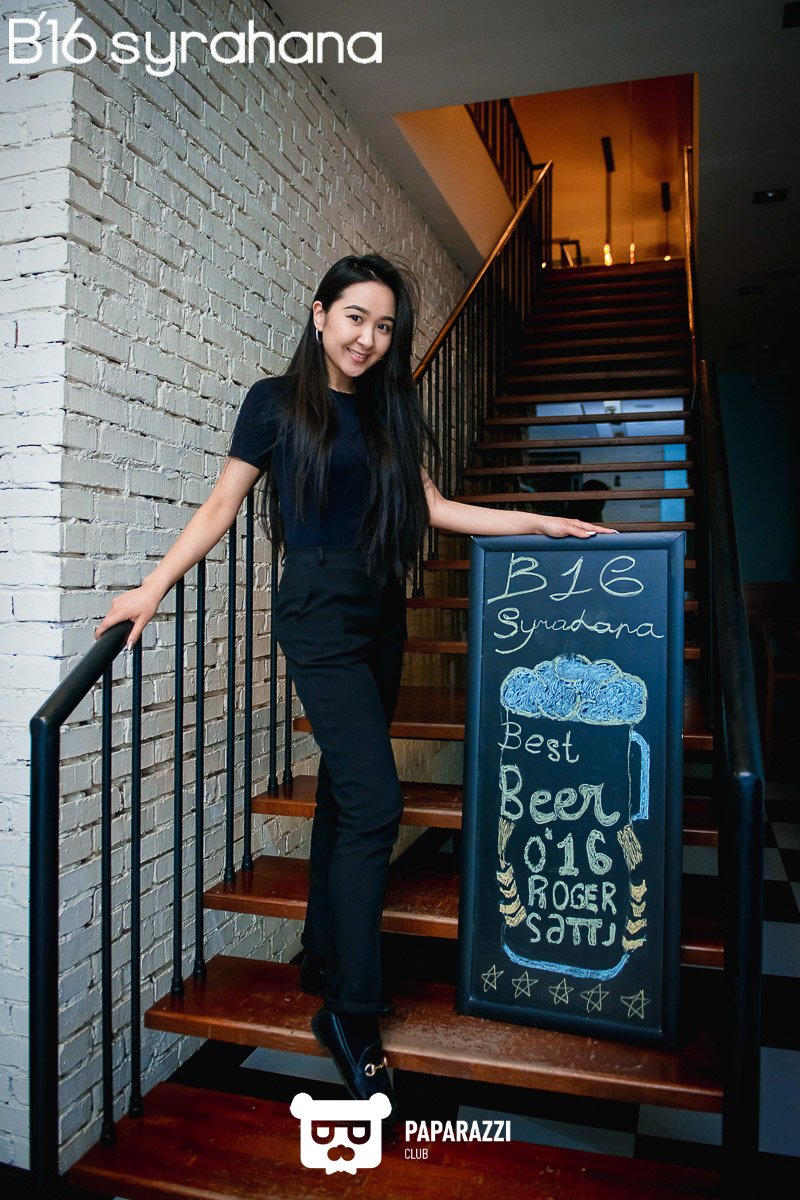 B'16 syrahana
B16
Syrahana
Best
Beer
O'16
ROGER
PAPARAZZI
CLUB